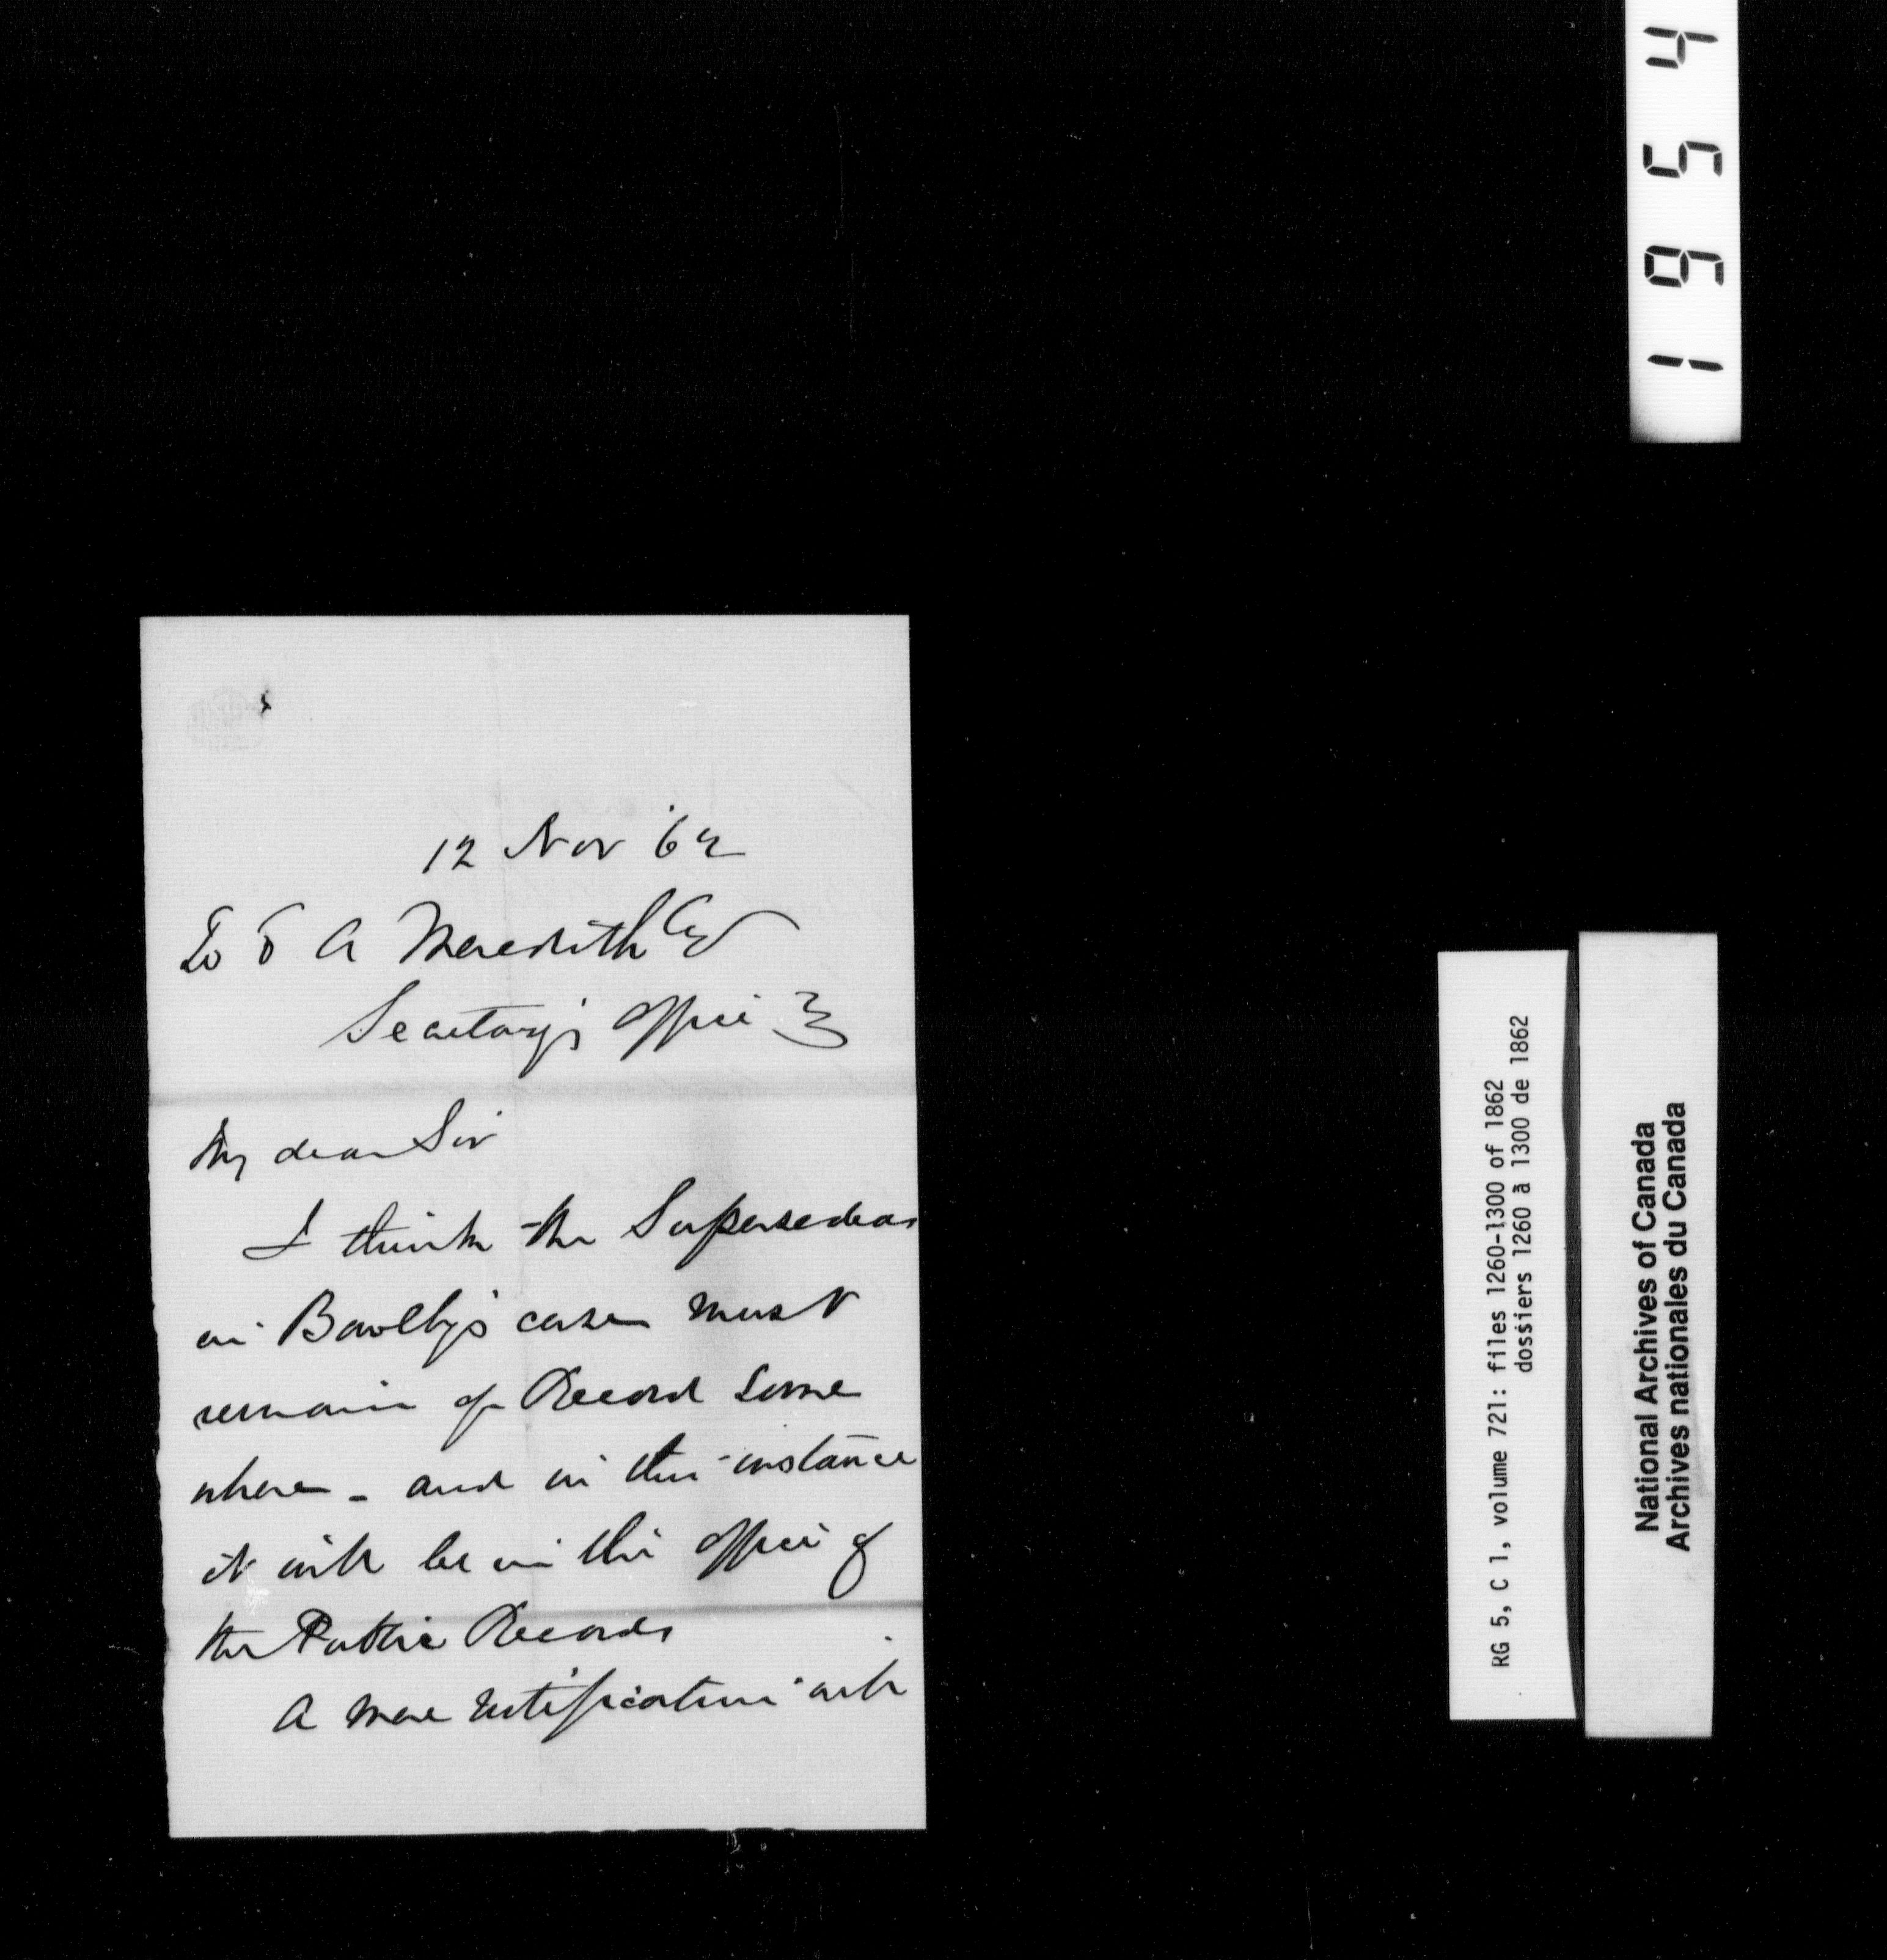 1954
12 Nov '62
To E A Meredith Esq
Secretary's Office
My dear Sir
I think the Supersedeas
in Bowlby's case must
remain of Record some
where - and in this instance
it will be in the Office of
the Public Records
A mere notification will
RG 5, C 1, volume 721: files 1260-1300 of 1862
dossiers 1260 à 1300 de 1862
National Archives of Canada
Archives nationales du Canada